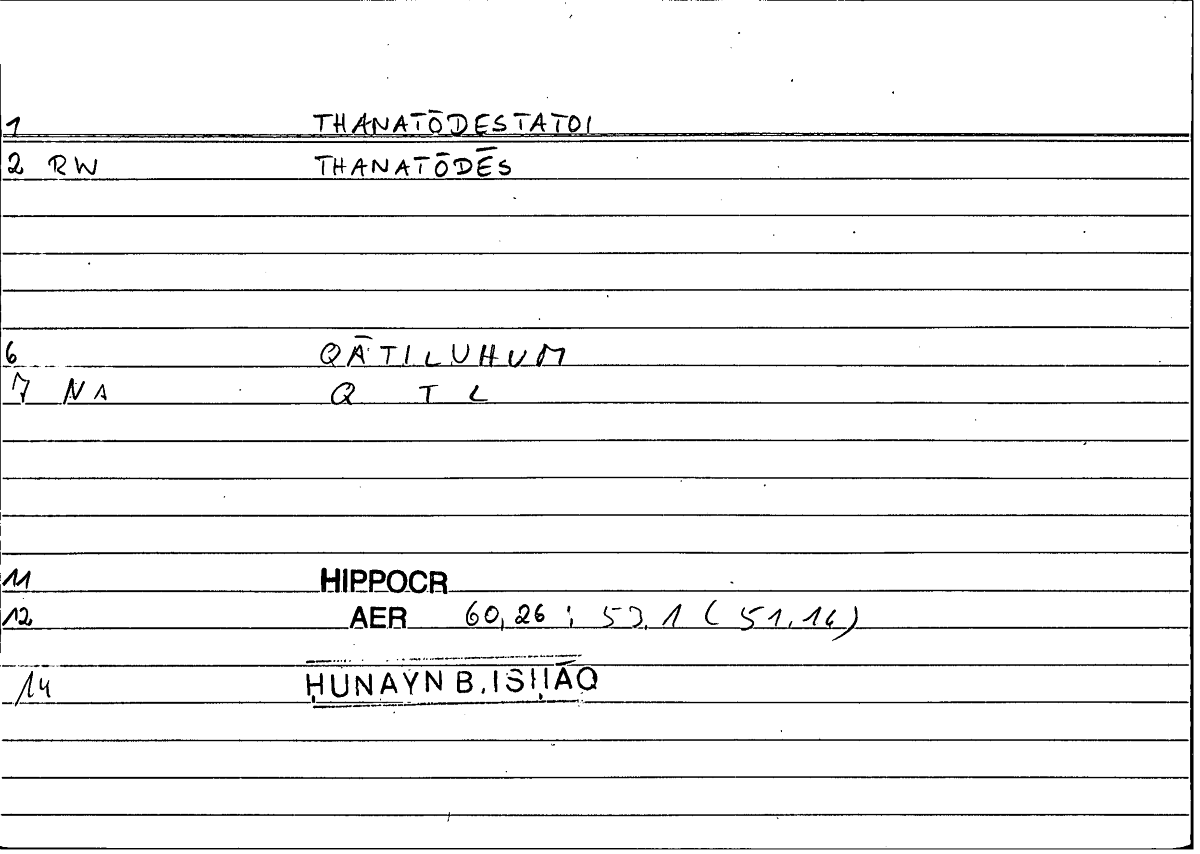 1 THANATŌDESTATOI
2 RW THANATŌDĒS
6 QĀTILUHUM
7 NA Q T L
11 HIPPOCR
12 AER 60,26 ; 53,1 (51,14)
14 ḤUNAYN B. ISḤĀQ